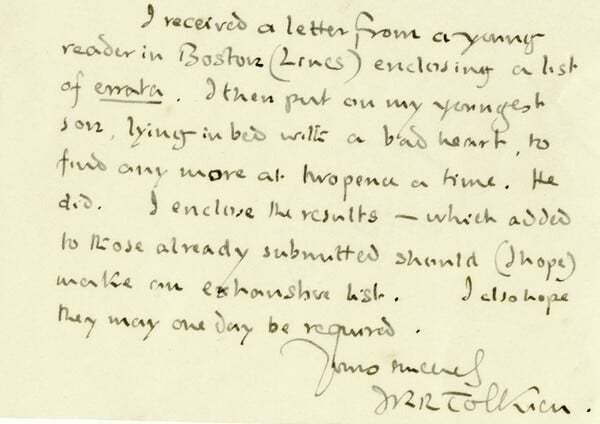 I received a letter from a young
reader in Boston (Lincs) enclosing a list
of errata. I then put on my youngest
son, lying in bed with a bad heart, to
find any more at twopence a time. He
did. I enclose the results – which added
to those already submitted should (I hope)
make an exhaustive list. I also hope
they may one day be required.
Yours sincerely
JRR Tolkien.